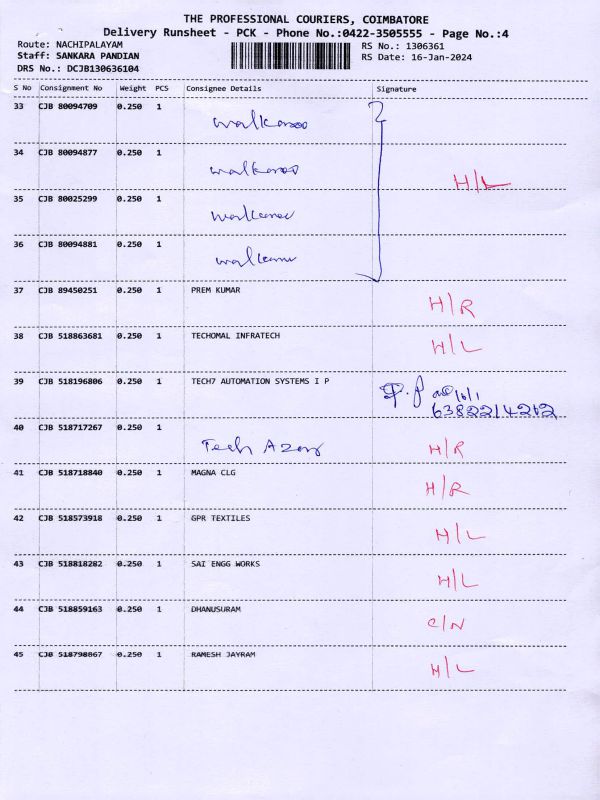 THE PROFESSIONAL COURIERS, COIMBATORE
Delivery Runsheet - PCK - Phone No.:0422-3505555 - Page No.:4
Route: NACHIPALAYAM RS No.: 1306361
Staff: SANKARA PANDIAN RS Date: 16-Jan-2024
DRS No.: DCJB130636104
S No Consignment No Weight PCS Consignee Details Signature
33 CJB 80094709 0.250 1
walkaroo
34 CJB 80094877 0.250 1
walkaroo H/L
35 CJB 80025299 0.250 1
36 CJB 80094881 0.250 1
37 CJB 89450251 0.250 1 PREM KUMAR H/R
38 CJB 518863681 0.250 1 TECHOMAL INFRATECH H/L
39 CJB 518196806 0.250 1 TECH7 AUTOMATION SYSTEMS I P
6382214212
40 CJB 518717267 0.250 1
Tech H/R
41 CJB 518718840 0.250 1 MAGNA CLG H/R
42 CJB 518573918 0.250 1 GPR TEXTILES H/L
43 CJB 518818282 0.250 1 SAI ENGG WORKS H/L
44 CJB 518859163 0.250 1 DHANUSURAM C/N
45 CJB 518798867 0.250 1 RAMESH JAYRAM H/L